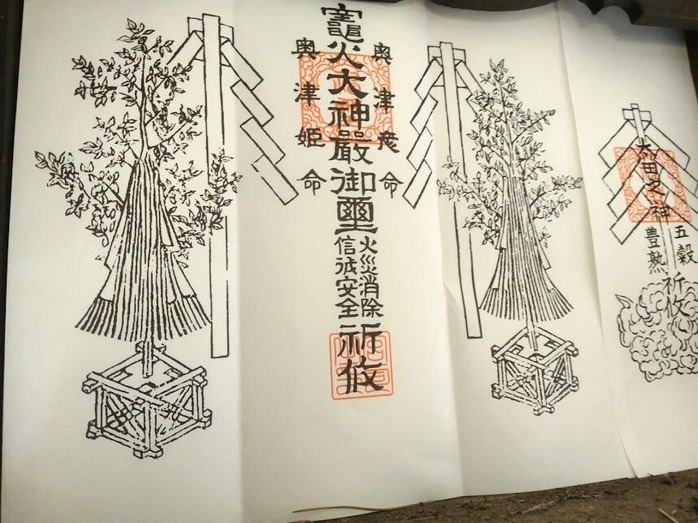 奥津彦命
竈火大神嚴御璽
奥津姫命
火災消除
信誠安全
祈攸
大田之神
五穀
豊熟
祈攸